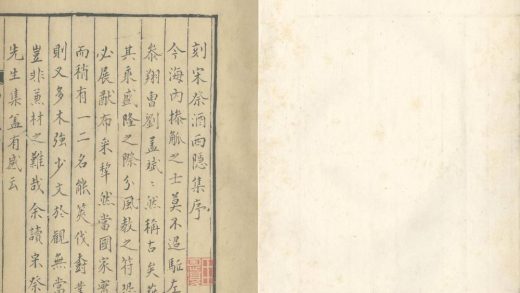 刻宋祭酒西隱集序
今海內摻觚之士莫不追駈左
翔曹劉蓋斌〻然稱古矣
其乘盛隆之際分風教之符
必展猷布采犖然當國家
而稍有一二名能英伐業
則又多木強少文於觀無當
豈非兼材之難哉余讀宋祭
先生集蓋有感云